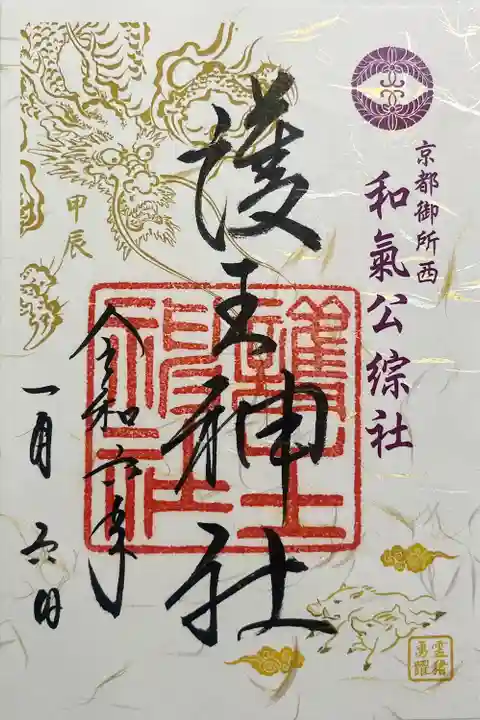 京都御所西
和氣公綜社
護王神社
護王
神社
甲辰
令和六年
一月六日
霊猪
勇躍